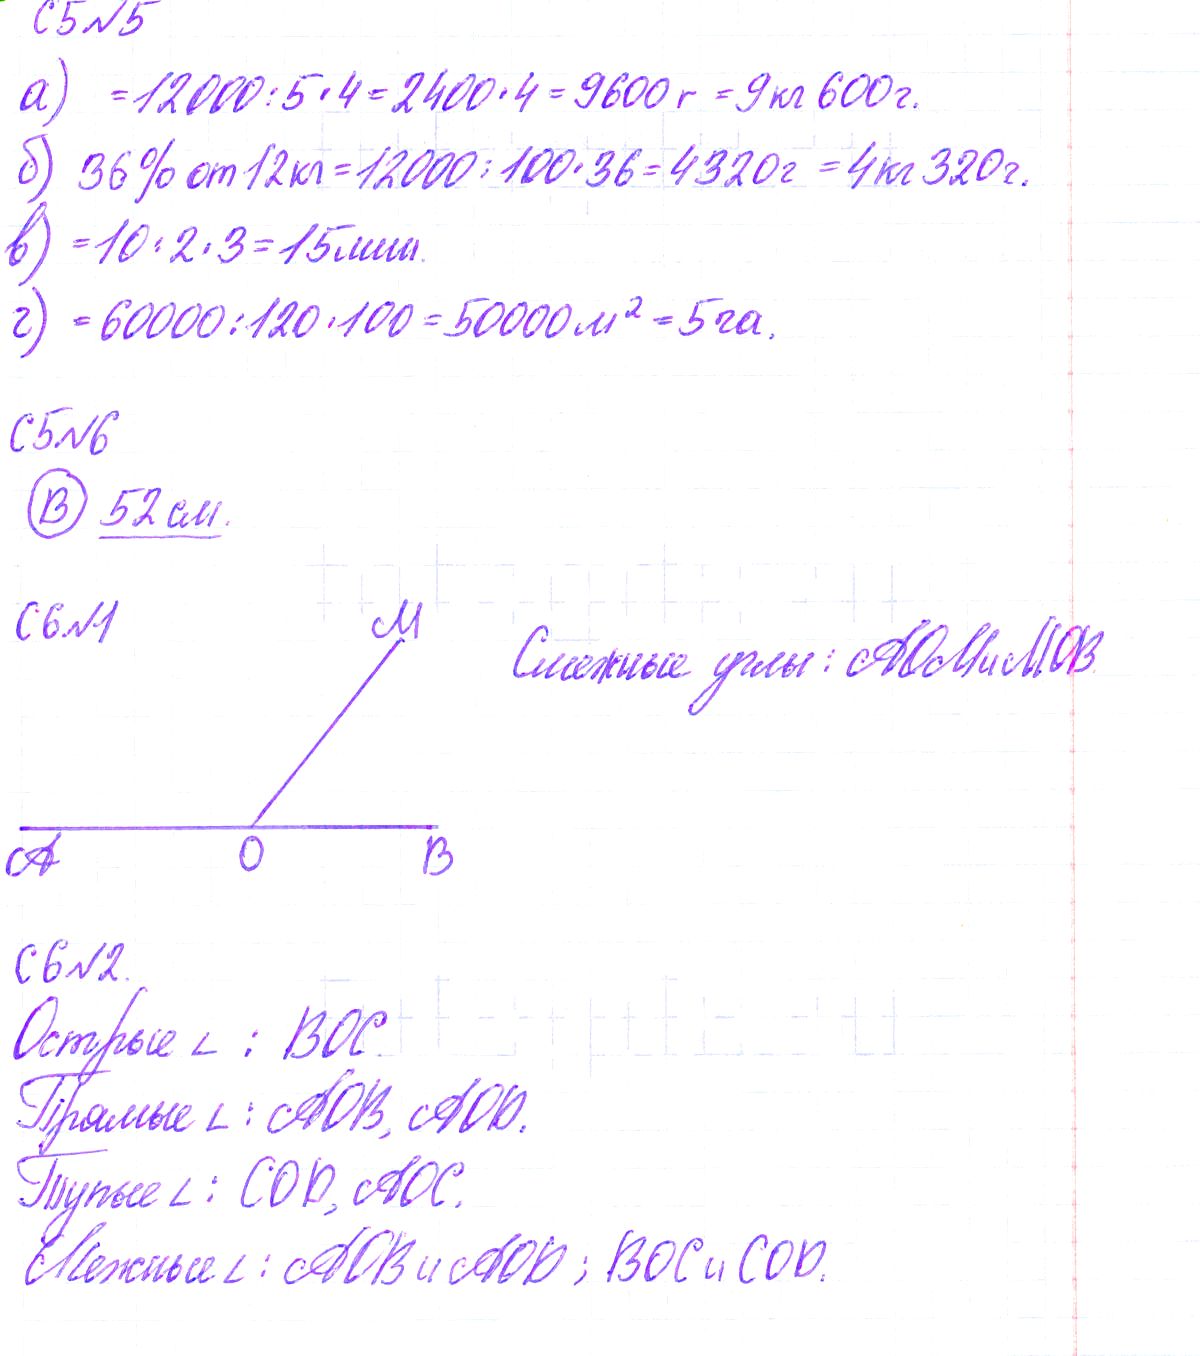 С5№5
а) =12000:5·4=2400·4=9600г =9кг 600г.
б) 36% от 12кг=12000:100·36=4320г =4кг 320г.
в) =10:2·3=15мин.
г) =60000:120·100=50000м²=5га.
С5№6
В 52 см.
С6№1
М
Смежные углы: АОМ и МОВ.
А О В
С6№2.
Острые ∠: ВОС
Прямые ∠: АОВ, АОD.
Тупые ∠: СОD, АОС.
Смежные ∠: АОВ и АОD; ВОС и СОD.